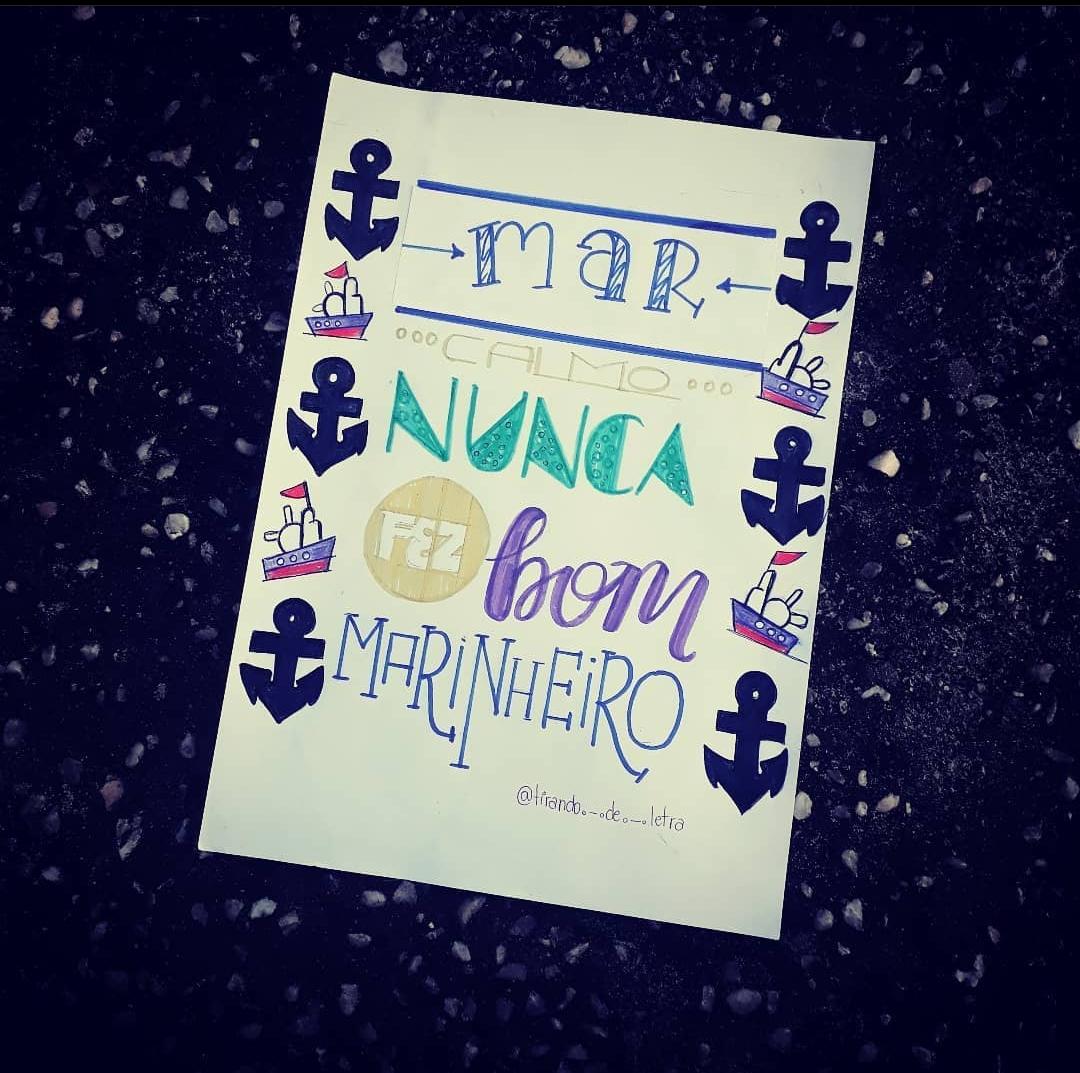 mar
CALMO
NUNCA
FEZ bom
MARiNHEiRO
@tirando._.de._.letra